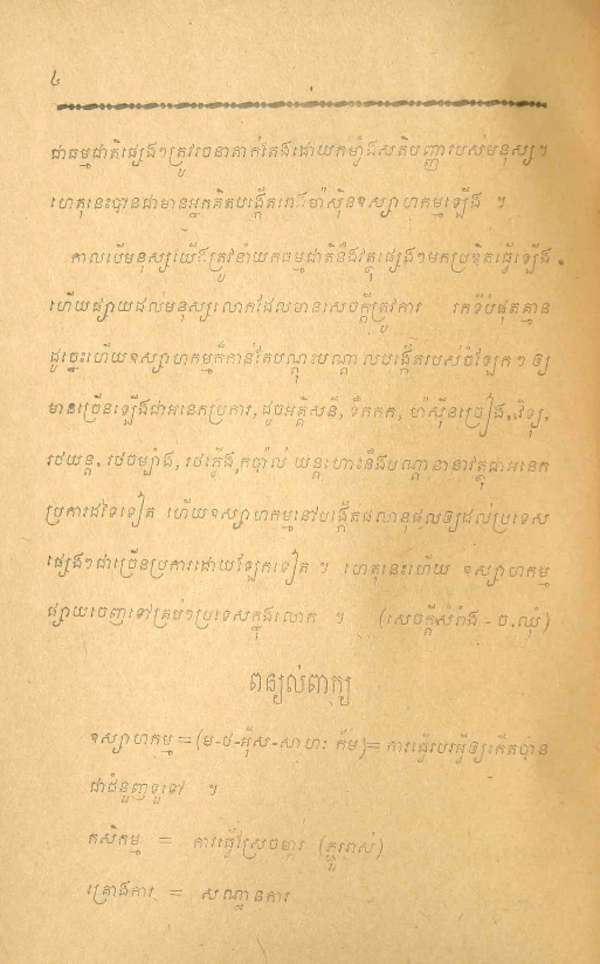 ៤
ជាធម្មជាតិផ្សេងៗត្រូវរចនាតាក់តែងដោយកម្លាំងសតិបញ្ញារបស់មនុស្ស។
ហេតុនេះបានជាមានអ្នកគិតបង្កើតរោងម៉ាស៊ីនឧស្សាហកម្មឡើង ។
កាលបើមនុស្សយើងត្រូវនាំយកធម្មជាតិនឹងវត្ថុផ្សេងៗមកប្រឌិតធ្វើឡើង
ហើយផ្សាយដល់មនុស្សលោកដែលមានសេចក្ដីត្រូវការ រកទីបំផុតគ្មាន
ដូច្នេះហើយឧស្សាហកម្មក៏កាន់តែបណ្ដុះបណ្ដាលបង្កើតរបស់ចំឡែកៗ ឲ្យ
មានច្រើនឡើងជាអនេកប្រការ, ដូចអគ្គិសនី, ទឹកកក, ម៉ាស៊ីនច្រៀង, វិទ្យុ,
រថយន្ត, រថចម្បាំង, រថភ្លើង, កប៉ាល់ យន្តហោះនឹងបណ្ដានានាវត្ថុជាអនេក
ប្រការដទៃទៀត ហើយឧស្សាហកម្មនៅបង្កើតផលានុផលឲ្យដល់ប្រទេស
ផ្សេងៗជាច្រើនប្រការដោយឡែកទៀត ។ ហេតុនេះហើយ ឧស្សាហកម្ម
ផ្សាយចេញទៅគ្រប់ៗប្រទេសក្នុងលោក ។ (សេចក្ដីសំរាំង - ច.ឈុំ)
ពន្យល់ពាក្យ
ឧស្សាហកម្ម = (ម-ថ-អ៊ុស-សាហៈ ក័ម) = ការធ្វើរបរអ្វីឲ្យកើតបាន
ជាជំនួញទួទៅ ។
កសិកម្ម = ការធ្វើស្រែចម្ការ (ភ្ជួររាស់)
គ្រោងការ = សណ្ឋានការ